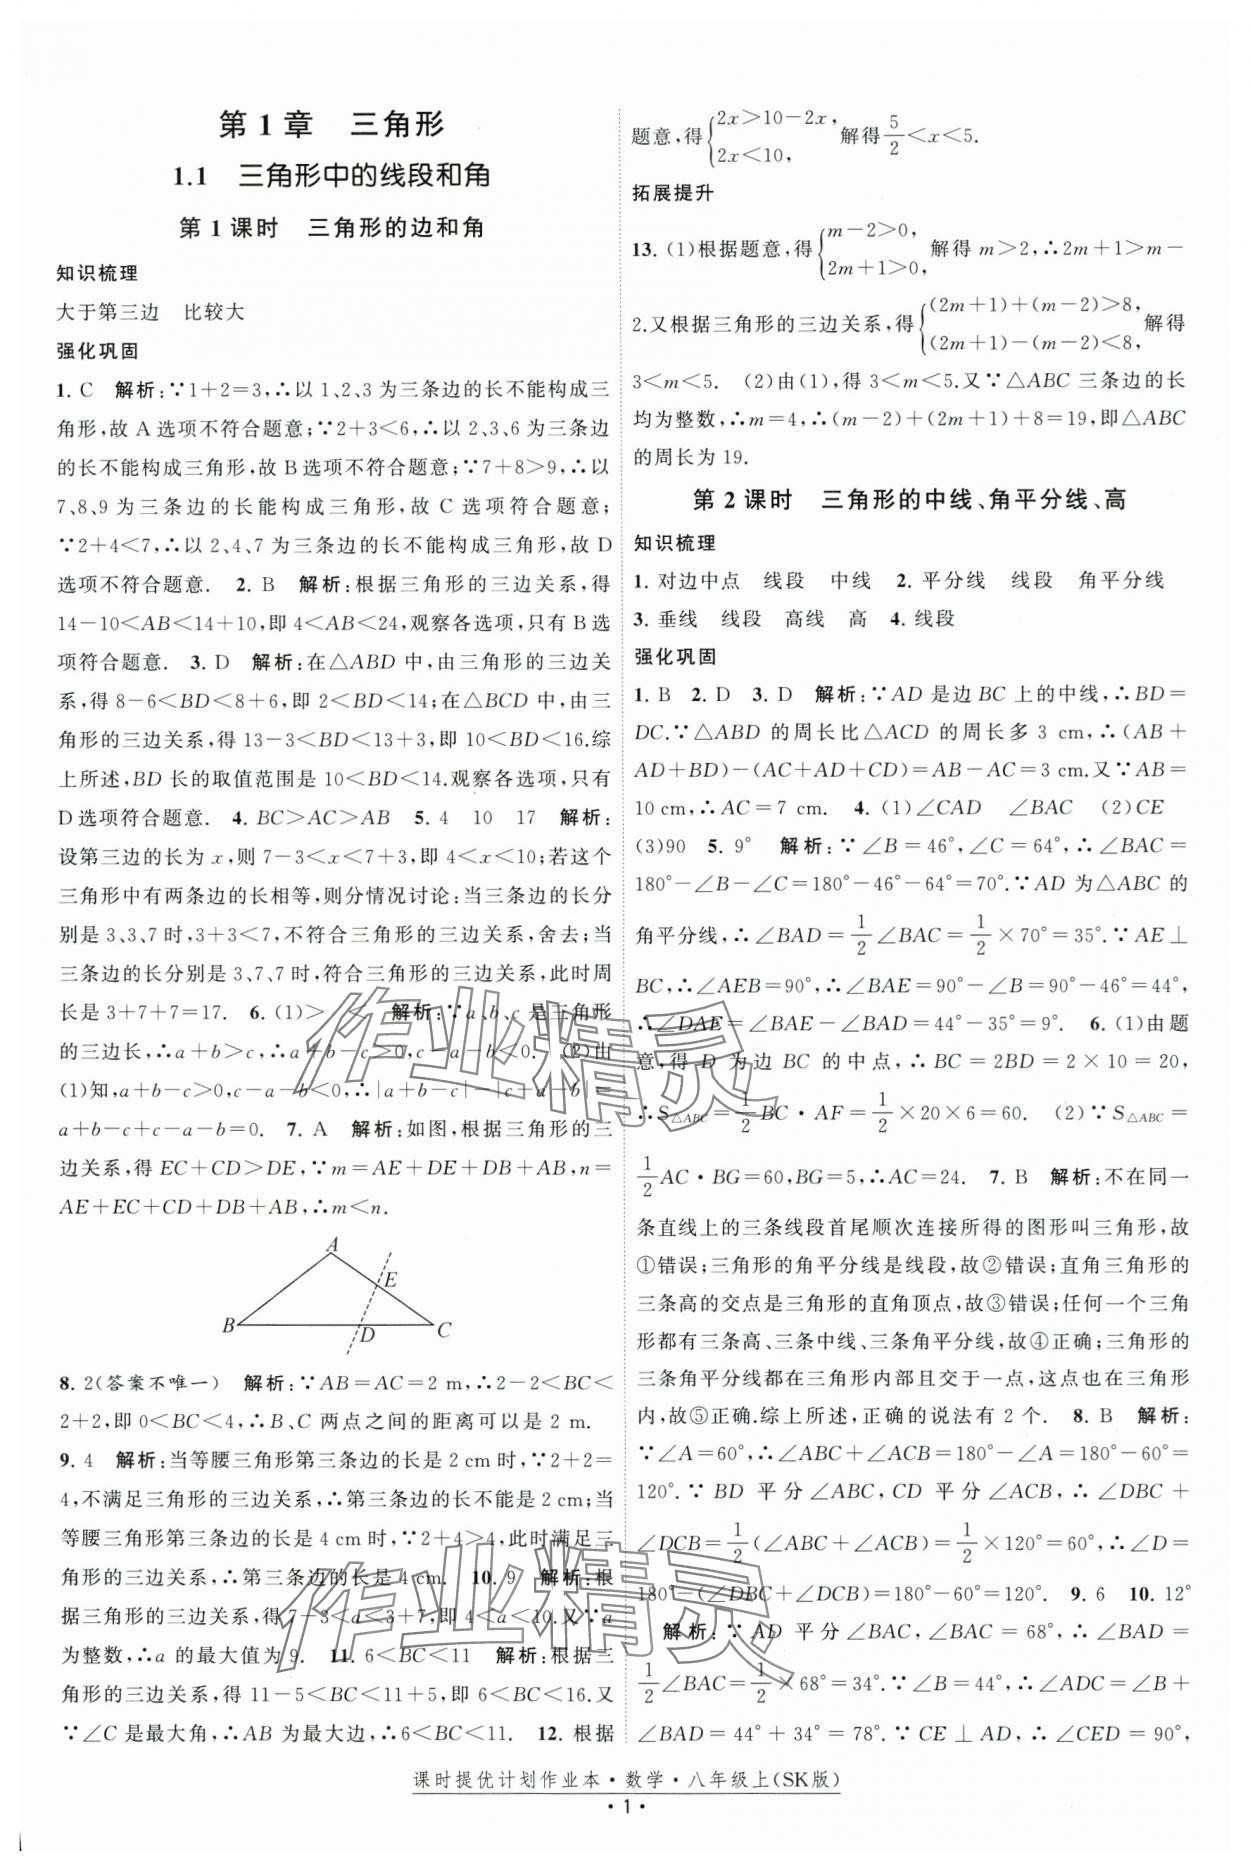 第1章　三角形
1.1　三角形中的线段和角
第1课时　三角形的边和角
知识梳理
大于第三边　比较大
强化巩固
1. C　解析:∵1+2=3,∴以1、2、3为三条边的长不能构成三
角形,故A选项不符合题意;∵2+3<6,∴以2、3、6为三条边
的长不能构成三角形,故B选项不符合题意;∵7+8>9,∴以
7、8、9为三条边的长能构成三角形,故C选项符合题意;
∵2+4<7,∴以2、4、7为三条边的长不能构成三角形,故D
选项不符合题意.　2. B　解析:根据三角形的三边关系,得
14-10<AB<14+10,即4<AB<24,观察各选项,只有B选
项符合题意.　3. D　解析:在△ABD中,由三角形的三边关
系,得8-6<BD<8+6,即2<BD<14;在△BCD中,由三
角形的三边关系,得13-3<BD<13+3,即10<BD<16.综
上所述,BD长的取值范围是10<BD<14.观察各选项,只有
D选项符合题意.　4. BC>AC>AB　5. 4　10　17　解析:
设第三边的长为x,则7-3<x<7+3,即4<x<10;若这个
三角形中有两条边的长相等,则分情况讨论:当三条边的长分
别是3、3、7时,3+3<7,不符合三角形的三边关系,舍去;当
三条边的长分别是3、7、7时,符合三角形的三边关系,此时周
长是3+7+7=17.　6. (1)>　<　解析:∵a、b、c是三角形
的三边长,∴a+b>c,∴a+b-c>0,c-a-b<0.　(2)由
(1)知,a+b-c>0,c-a-b<0,∴|a+b-c|-|c-a-b|=
a+b-c+c-a-b=0.　7. A　解析:如图,根据三角形的三
边关系,得EC+CD>DE,∵m=AE+DE+DB+AB,n=
AE+EC+CD+DB+AB,∴m<n.
A
E
B
D
C
8. 2(答案不唯一)　解析:∵AB=AC=2 m,∴2-2<BC<
2+2,即0<BC<4,∴B、C两点之间的距离可以是2 m.
9. 4　解析:当等腰三角形第三条边的长是2 cm时,∵2+2=
4,不满足三角形的三边关系,∴第三条边的长不能是2 cm;当
等腰三角形第三条边的长是4 cm时,∵2+4>4,此时满足三
角形的三边关系,∴第三条边的长是4 cm.　10. 9　解析:根
据三角形的三边关系,得7-3<a<3+7,即4<a<10.又∵a
为整数,∴a的最大值为9.　11. 6<BC<11　解析:根据三
角形的三边关系,得11-5<BC<11+5,即6<BC<16.又
∵∠C是最大角,∴AB为最大边,∴6<BC<11.　12. 根据
题意,得{2x>10-2x, 2x<10, 解得5/2<x<5.
拓展提升
13. (1)根据题意,得{m-2>0, 2m+1>0, 解得m>2,∴2m+1>m-
2.又根据三角形的三边关系,得{(2m+1)+(m-2)>8, (2m+1)-(m-2)<8, 解得
3<m<5.　(2)由(1),得3<m<5.又∵△ABC三条边的长
均为整数,∴m=4,∴(m-2)+(2m+1)+8=19,即△ABC
的周长为19.
第2课时　三角形的中线、角平分线、高
知识梳理
1. 对边中点　线段　中线　2. 平分线　线段　角平分线
3. 垂线　线段　高线　高　4. 线段
强化巩固
1. B　2. D　3. D　解析:∵AD是边BC上的中线,∴BD=
DC.∵△ABD的周长比△ACD的周长多3 cm,∴(AB+
AD+BD)-(AC+AD+CD)=AB-AC=3 cm.又∵AB=
10 cm,∴AC=7 cm.　4. (1)∠CAD　∠BAC　(2)CE
(3)90　5. 9°　解析:∵∠B=46°,∠C=64°,∴∠BAC=
180°-∠B-∠C=180°-46°-64°=70°.∵AD为△ABC的
角平分线,∴∠BAD=1/2∠BAC=1/2×70°=35°.∵AE⊥
BC,∴∠AEB=90°,∴∠BAE=90°-∠B=90°-46°=44°,
∴∠DAE=∠BAE-∠BAD=44°-35°=9°.　6. (1)由题
意,得D为边BC的中点,∴BC=2BD=2×10=20,
∴S△ABC=1/2BC·AF=1/2×20×6=60.　(2)∵S△ABC=
1/2AC·BG=60,BG=5,∴AC=24.　7. B　解析:不在同一
条直线上的三条线段首尾顺次连接所得的图形叫三角形,故
①错误;三角形的角平分线是线段,故②错误;直角三角形的
三条高的交点是三角形的直角顶点,故③错误;任何一个三角
形都有三条高、三条中线、三条角平分线,故④正确;三角形的
三条角平分线都在三角形内部且交于一点,这点也在三角形
内,故⑤正确.综上所述,正确的说法有2个.　8. B　解析:
∵∠A=60°,∴∠ABC+∠ACB=180°-∠A=180°-60°=
120°.∵BD平分∠ABC,CD平分∠ACB,∴∠DBC+
∠DCB=1/2(∠ABC+∠ACB)=1/2×120°=60°,∴∠D=
180°-(∠DBC+∠DCB)=180°-60°=120°.　9. 6　10. 12°
解析:∵AD平分∠BAC,∠BAC=68°,∴∠BAD=
1/2∠BAC=1/2×68°=34°.∵∠B=44°,∴∠ADC=∠B+
∠BAD=44°+34°=78°.∵CE⊥AD,∴∠CED=90°,
课时提优计划作业本·数学·八年级上(SK版)
·1·
作业精灵
作业精灵